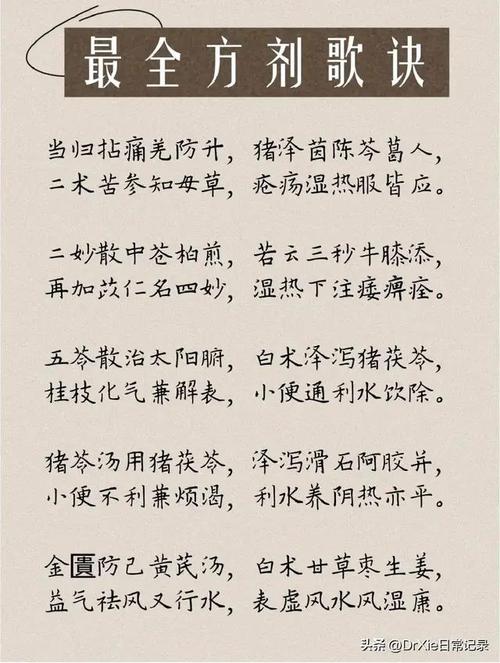 最全方剂歌诀
当归拈痛羌防升，猪泽茵陈芩葛人，
二术苦参知母草，疮疡湿热服皆应。
二妙散中苍柏煎，若云三秒牛膝添，
再加苡仁名四妙，湿热下注痿痹痊。
五苓散治太阳腑，白术泽泻猪茯苓，
桂枝化气兼解表，小便通利水饮除。
猪苓汤用猪茯苓，泽泻滑石阿胶并，
小便不利兼烦渴，利水养阴热亦平。
金匱防己黄芪汤，白术甘草枣生姜，
益气祛风又行水，表虚风水风湿康。
头条 @DrXie日常记录